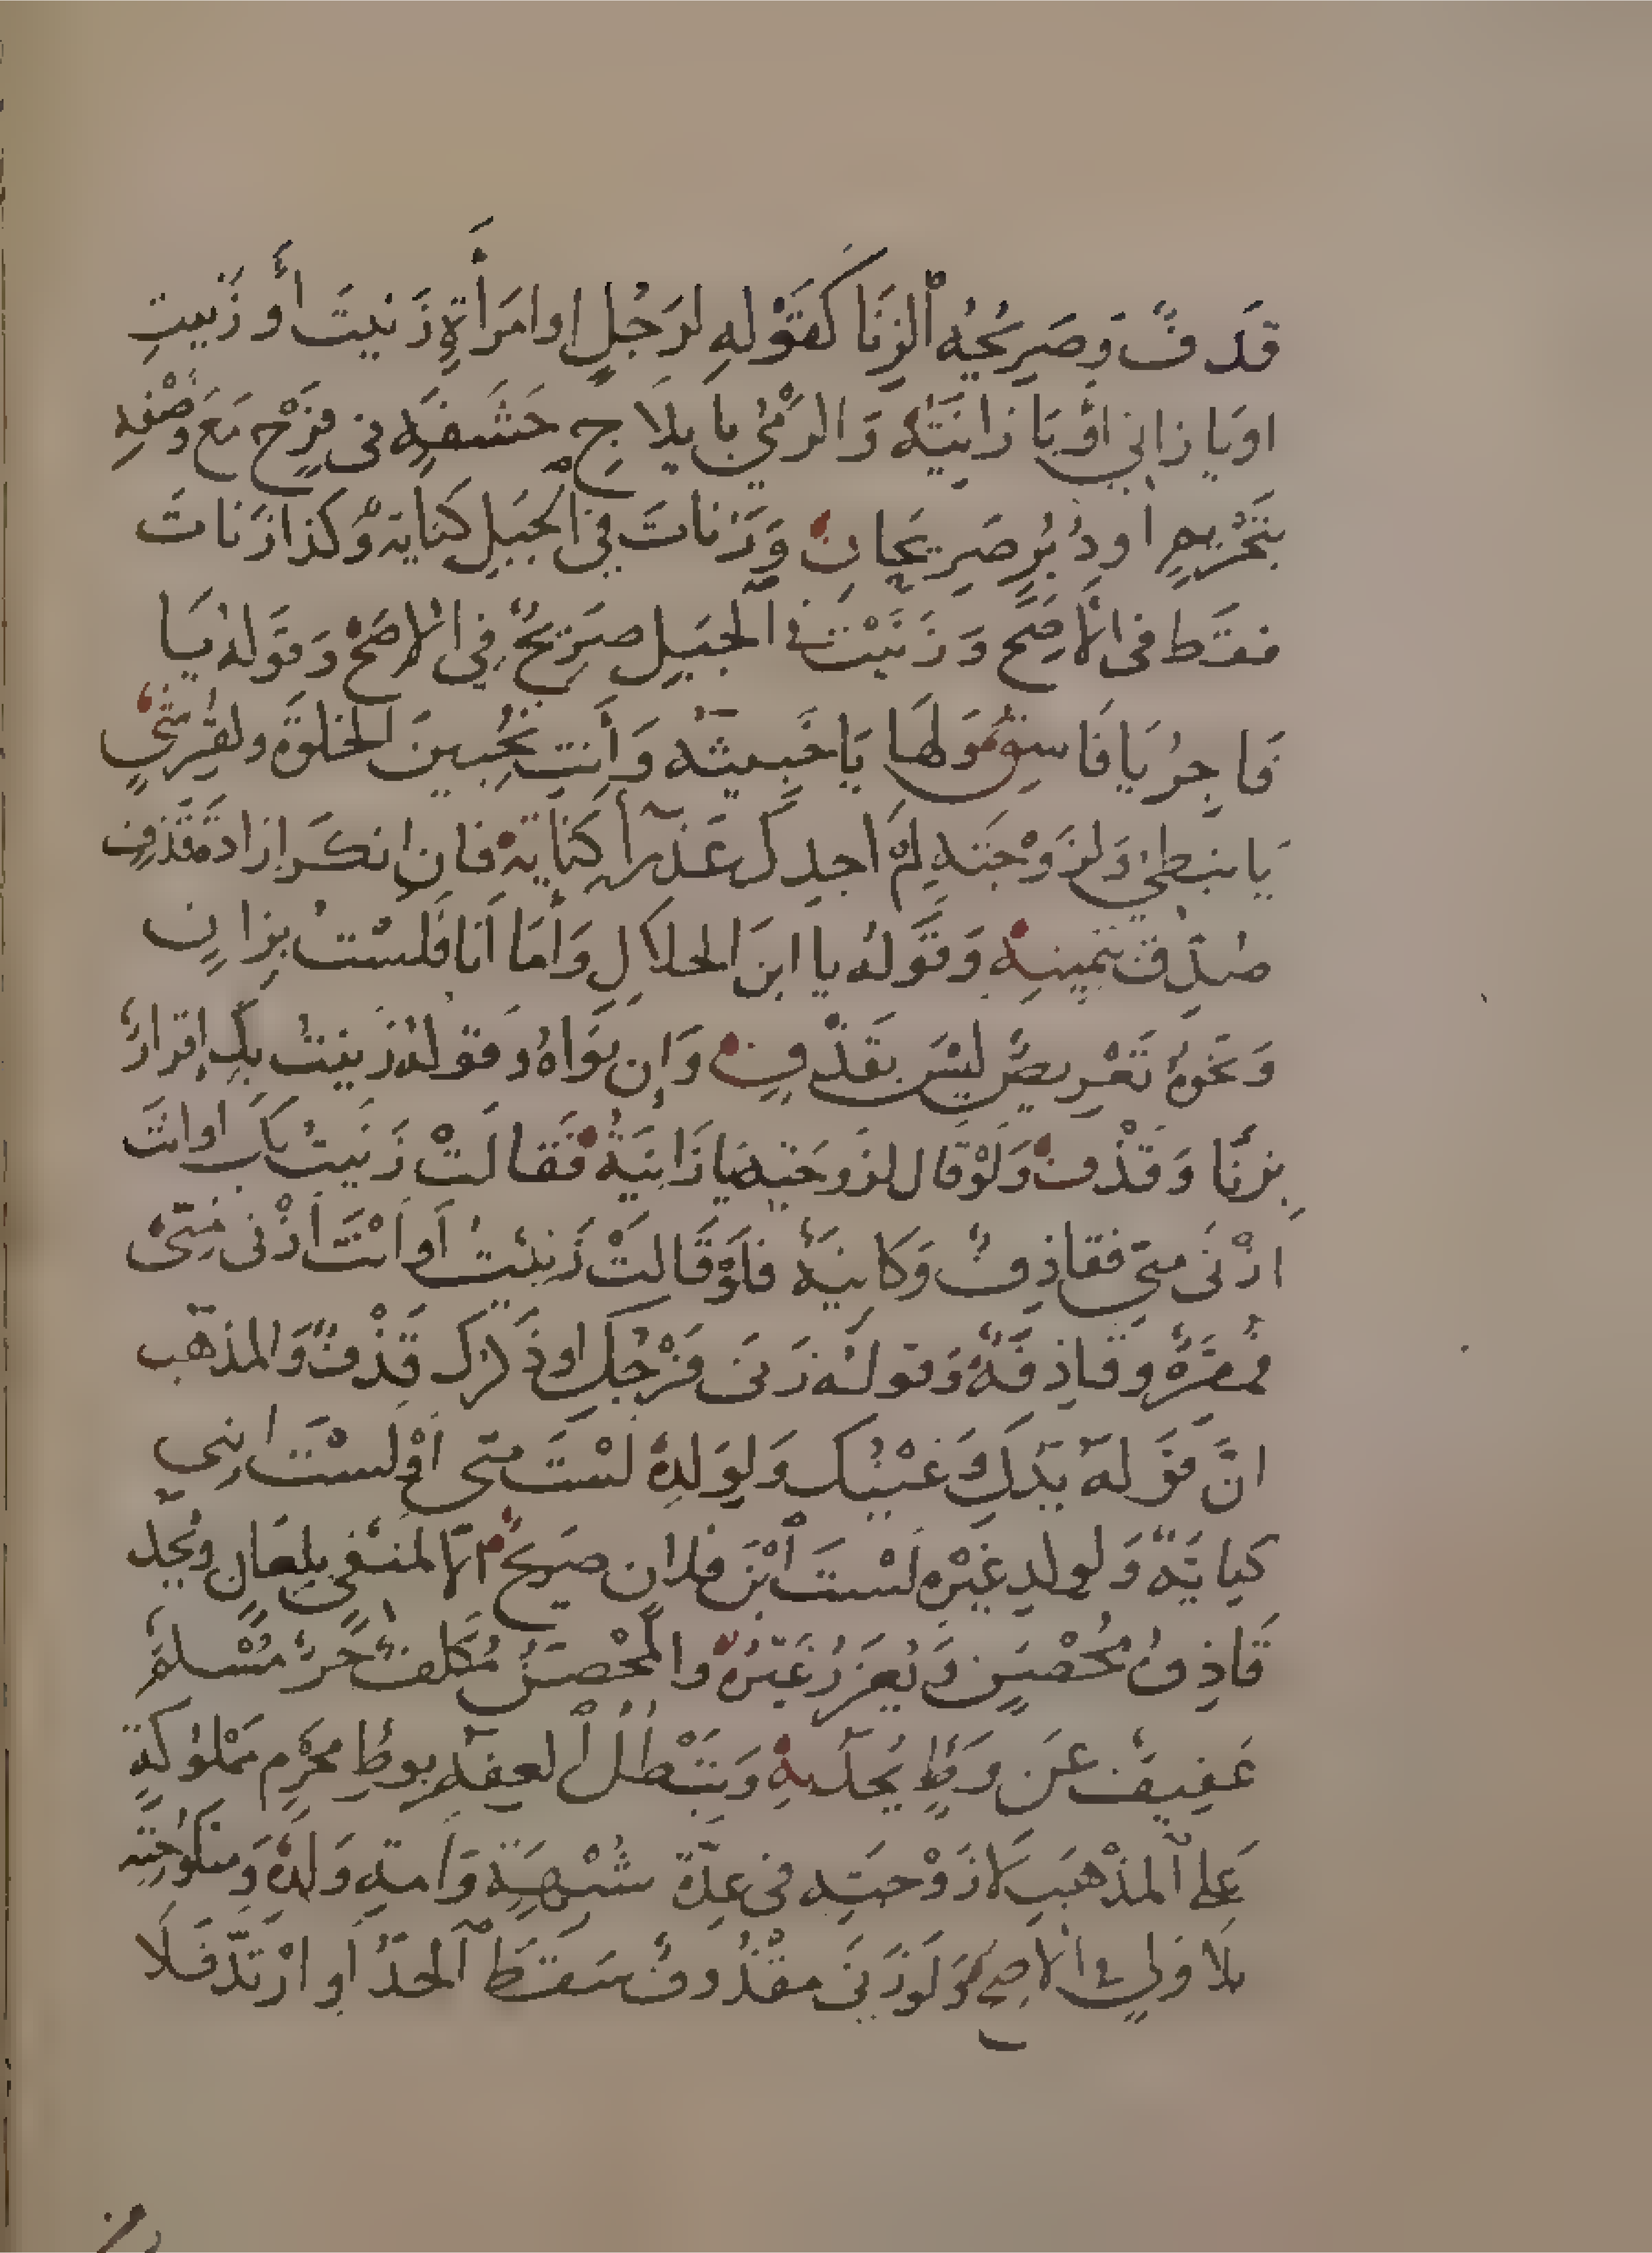 قَذفٌ وَصَرِيحُهُ ٱلزِنَا كَقَوْلِهِ لرَجُلٍ اوامرَأَةٍ زَنَيتَ أَو زَنَيتِ
اوَيا زانِي أَوْيَا زانِيَةُ وَالرَمْيُ بِا يلاَجِ حَشَفَةٍ فى فَرْجٍ مَعَ وَصْفِهِ
بتَحْرِيمٍ أودُبُرٍ صَرِيحَانِ وَزَنَاتَ فِي الجَبَلِ كنايَةٌ وَكَذا زَنَاتَ
فقَط فى الأصَحِّ وَزَنَيْتَ فى ٱلجَبَلِ صَرِيحٌ فِي الأصَحِّ وَقَولهُ يَا
فَاجِرُ يَا فَاسِقُ وَلَهَا يَا خَبِيثَة وَأَنتِ تُحِبينَ الخلوَةَ ولقُرَشيٍ
يَا نبَطِيُ وَلزَوْجَتِهِ لَمْ أَجِدكِ عَذْرَآ كِنَايَةٌ فان انكَرَ ارَادَةَ قَذْفٍ
صُدِّقَ بيَمِينِهِ وَقَولهُ يا ابنَ الحلاَلِ وَأَمَا أَنَا فَلَسْتُ بِزانٍ
وَنَحْوِهُ تَعْرِيضٌ ليْسَ بقَذْفٍ وَإِن نوَاهُ وَقَولهُ زَنيتُ بِكِ إقرارٌ
بِزنًا وَقَذْفٌ وَلَوْ قال لزَوجَتِهِ يَا زَانِيَةُ فَقَالَتْ زَنَيتُ بكَ اوانتَ
ازْنَى منّي فقاذِفٌ وَكانِيَةٌ فلَوْ قَالتْ زَنيْتُ أَو أَنْتَ أَزْنى مِنّىْ
فمُقِرَّةٌ وقَاذِفَةٌ وَقولهُ زَنَى فَرْجُكِ اوذَكَرُك قَذْفٌ وَالمذهَب
انَّ قَوْلهُ يَدُكَ وَعَيْنُك وَلِوَلدِهْ لَسْتَ منّى أَوْ لَستَ ابني
كنايَةٌ وَلولدِ غَيْرِهِ لَسْتَ ٱبْنَ فلان صَرِيحٌ إلاّ لمنفى بلعَانٍ وَيُحَدُّ
قَاذِفُ مُحْصَنٍ وَيُعَزَّرُ غَيْرُهْ والمُحْصَنُ مُكَلفٌ حُرٌّ مُسْلمٌ
عَفِيفٌ عَن وَطْءٍ يُحَدُّ بِهِ وَتَبْطُلُ ٱلعِفةُ بوطءِ مَحْرَمٍ مَمْلُوكَةٍ
عَلى ٱلمذْهَبِ لاَ زَوْجَتِهِ فى عِدَّةِ شُبْهَةٍ وَأَمَةِ وَلدِهْ وَمنكُوحَتِه
بلاَ وَلِيٍ في الأصَح وَلَوْ زَنَى مقْذُوفٌ سَقَطَ ٱلحَدُّ أَو ارْتَدَّ فَلاَ